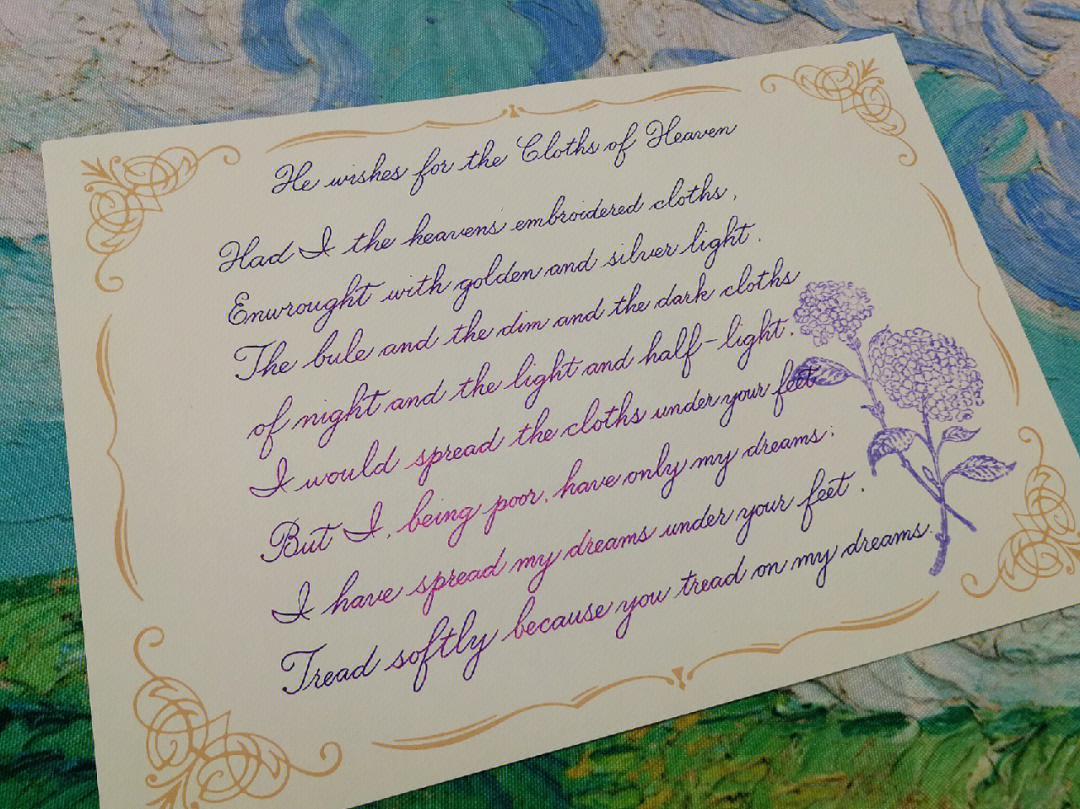 He wishes for the Cloths of Heaven
Had I the heavens' embroidered cloths,
Enwrought with golden and silver light.
The bule and the dim and the dark cloths
of night and the light and half-light.
I would spread the cloths under your feet
But I, being poor, have only my dreams;
I have spread my dreams under your feet.
Tread softly because you tread on my dreams.